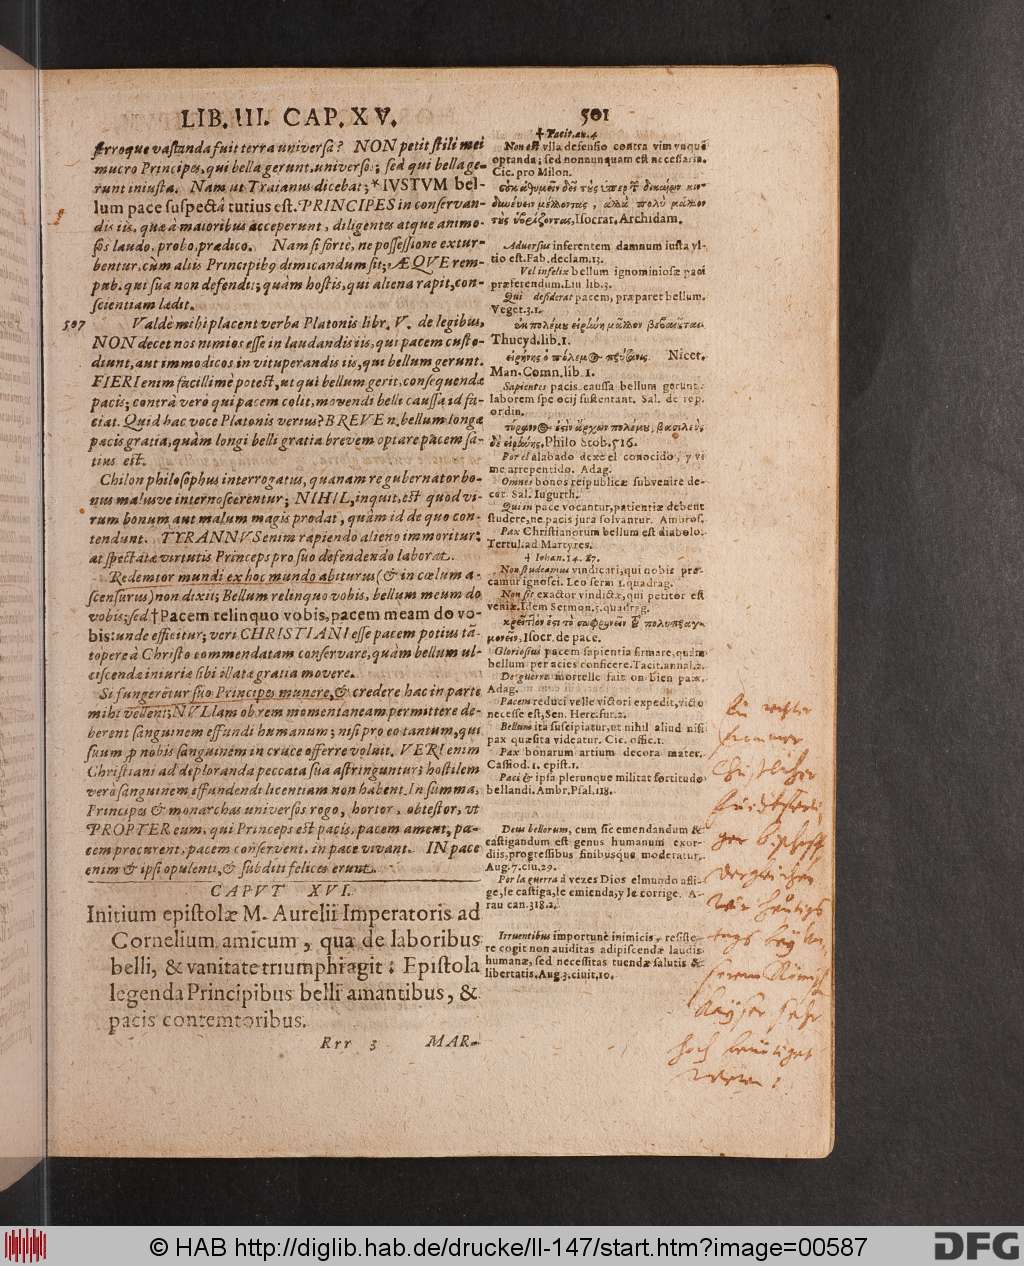 LIB. III. CAP. XV. 501
ferroque vastanda fuit terra universa? NON petit stili mei
mucro Principes, qui bella gerunt universos; sed qui bella ge-
runt iniusta. Nam ut Traianus dicebat; *IVSTVM bel-
lum pace suspectâ tutius est. PRINCIPES in conservan-
dis iis, quæ à maioribus acceperunt, diligentes atque animo-
sos laudo, probo, prædico. Nam si fortè, ne possessione extur-
bentur, cùm aliis Principibꝰ dimicandum sit; ÆQVE rem-
pub. qui sua non defendit; quàm hostis, qui aliena rapit, con-
scientiam lædit.
507 Valdè mihi placent verba Platonis libr. V. de legibus,
NON decet nos nimios esse in laudandis iis, qui pacem custo-
diunt, aut immodicos in vituperandis iis, qui bellum gerunt.
FIERI enim facillimè potest, ut qui bellum gerit, consequendæ
pacis; contrà verò qui pacem colit, movendi belli caussa id fa-
ciat. Quid hac voce Platonis verius? BREVE n. bellum longæ
pacis gratia, quàm longi belli gratia brevem optare pacem sa-
tius est.
Chilon philosophus interrogatus, quanam re gubernator bo-
nus malusve internoscerentur; NIHIL, inquit, est quod vi-
rum bonum aut malum magis prodat, quàm id de quo con-
tendunt. TYRANNVS enim rapiendo alieno immoritur;
at spectatæ virtutis Princeps pro suo defendendo laborat.
Redemtor mundi ex hoc mundo abiturus (& in cœlum a-
scensurus) non dixit; Bellum relinquo vobis, bellum meum do
vobis; sed †Pacem relinquo vobis, pacem meam do vo-
bis: unde efficitur; veri CHRISTIANI esse pacem potius tã-
topere à Christo commendatam conservare, quàm bellum ul-
ciscendæ iniuriæ sibi illatæ gratia movere.
Si fungerẽtur suo Principes munere, & credere hac in parte
mihi vellent; NVLlam ob rem momentaneam permittere de-
berent sanguinem effundi humanum; nisi pro eo tantum, qui
suum ꝓ nobis sanguinem in cruce offerre voluit. VERI enim
Christiani ad deploranda peccata sua astringuntur; hostilem
verò sanguinem effundendi licentiam non habent. In summa;
Principes & monarchas universos rogo, hortor, obtestor, vt
PROPTER eum, qui Princeps est pacis, pacem ament, pa-
cem procurent, pacem conservent, in pace vivant. IN pace
enim & ipsi opulenti, & subditi felices erunt.
CAPVT XVI.
Initium epistolæ M. Aurelii Imperatoris ad
Cornelium amicum, qua de laboribus
belli, & vanitate triumphi agit: Epistola
legenda Principibus belli amantibus, &
pacis contemtoribus.
Rrr 3 MAR-
† Pacit. an. 4
Non est vlla defensio contra vim vnquã
optanda; sed nonnunquam est necessaria.
Cic. pro Milon.
Isocrat. Archidam.
Adversus inferentem damnum iusta vl-
tio est. Fab. declam. 13.
Vel infelix bellum ignominiosæ paci
præferendum. Liu lib. 3.
Qui desiderat pacem, præparet bellum.
Veget. 3. 1.
Thucyd. lib. 1.
Nicet.
Man. Comn. lib. 1.
Sapientes pacis caussa bellum gerunt:
laborem spe ocij sustentant. Sal. de rep.
ordin.
Philo Stob. 516.
Por el alabado dexe el conocido, y vi
me arrepentido. Adag.
Omnes bonos reipublicæ subvenire de-
cet. Sal. Iugurth.
Qui in pace vocantur, patientiæ debent
studere, ne pacis jura solvantur. Ambros.
Pax Christianorum bellum est diabolo.
Tertul. ad Martyres.
† Iohan. 14. 27.
Non studeamus vindicari, qui nobis pre-
camur ignosci. Leo serm 1. quadrag.
Non sit exactor vindictæ, qui petitor est
veniæ. Idem Sermon. 5. quadrag.
Isocr. de pace.
Gloriosius pacem sapientia firmare, quàm
bellum per acies conficere. Tacit. annal. 2.
De guerre mortelle fait on bien paix.
Adag.
Pacem reduci velle victori expedit, victo
necesse est, Sen. Herc. fur. 2.
Bellum ita suscipiatur, ut nihil aliud nisi
pax quæsita videatur. Cic. offic. 1.
Pax bonarum artium decora mater.
Cassiod. 1. epist. 1.
Paci & ipsa plerunque militat fortitudo
bellandi. Ambr. Psal. 118.
Deus bellorum, cum sic emendandum &
castigandum est genus humanum exor-
diis, progressibus finibusque moderatur.
Aug. 7. ciu. 29.
Por la guerra à vezes Dios el mundo affli-
ge, le castiga, le emienda, y le corrige. A-
rau can. 318. 2.
Irruentibus importunè inimicis, resiste-
re cogit non aviditas adipiscendæ laudis
humanæ, sed necessitas tuendæ salutis &
libertatis. Aug. 3. ciuit. 10.
© HAB http://diglib.hab.de/drucke/ll-147/start.htm?image=00587
DFG